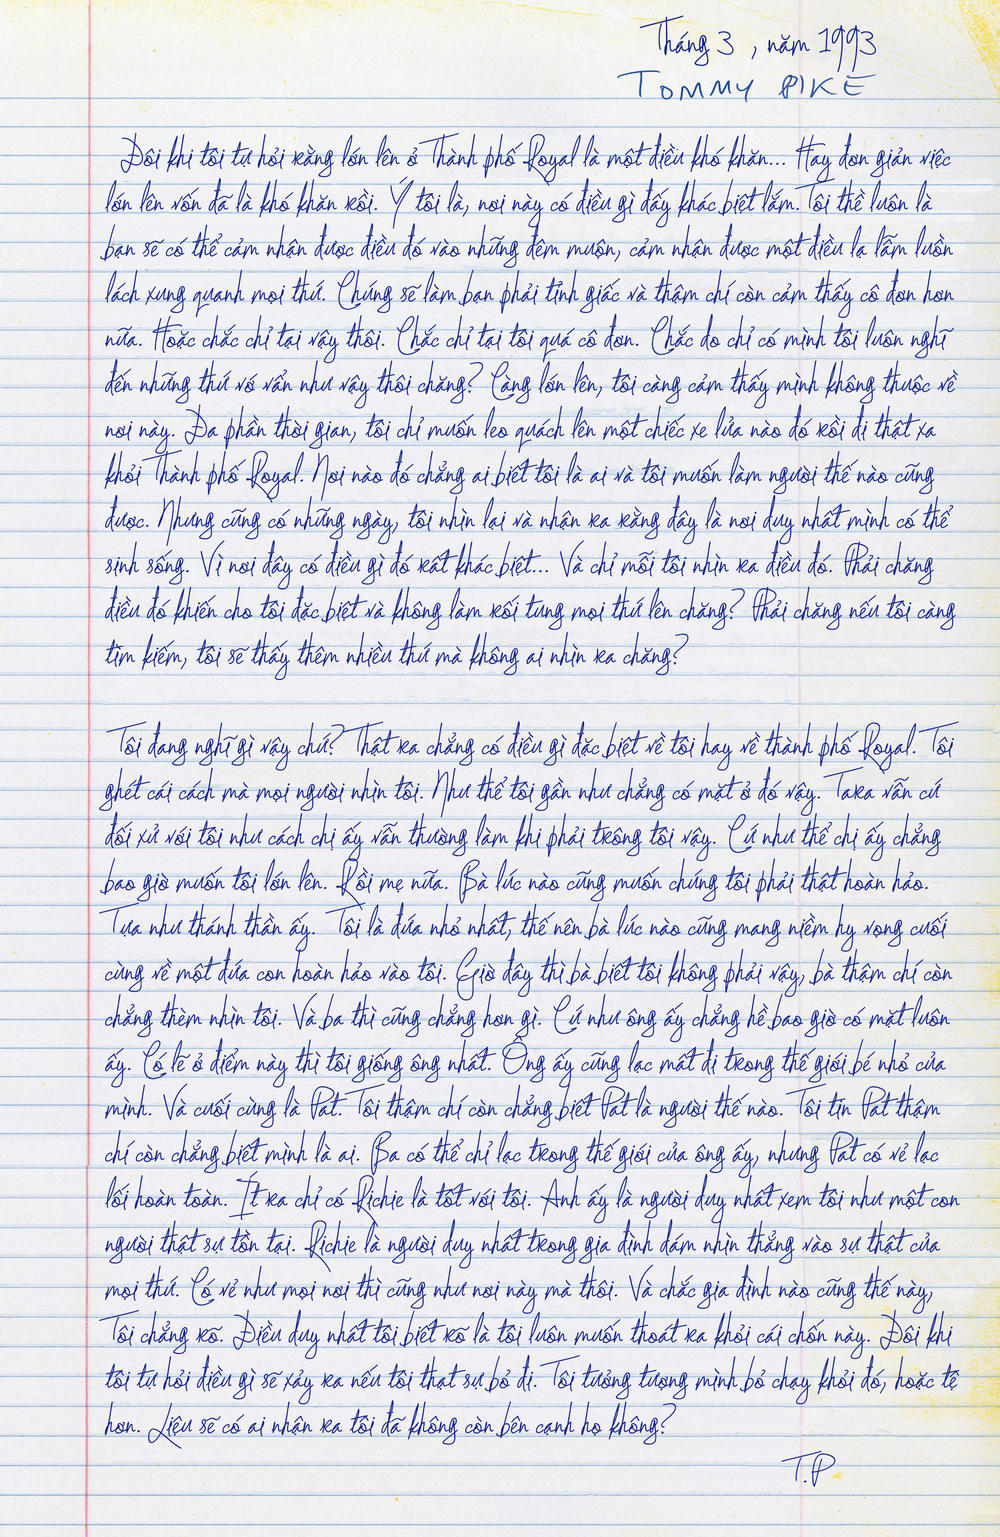 Tháng 3 , năm 1993
TOMMY PIKE
Đôi khi tôi tự hỏi rằng lớn lên ở Thành phố Royal là một điều khó khăn... Hay đơn giản việc
lớn lên vốn đã là khó khăn rồi. Ý tôi là, nơi này có điều gì đấy khác biệt lắm. Tôi thề luôn là
bạn sẽ có thể cảm nhận được điều đó vào những đêm muộn, cảm nhận được một điều lạ lẫm luồn
lách xung quanh mọi thứ. Chúng sẽ làm bạn phải tỉnh giấc và thậm chí còn cảm thấy cô đơn hơn
nữa. Hoặc chắc chỉ tại vậy thôi. Chắc chỉ tại tôi quá cô đơn. Chắc do chỉ có mình tôi luôn nghĩ
đến những thứ vớ vẩn như vậy thôi chăng? Càng lớn lên, tôi càng cảm thấy mình không thuộc về
nơi này. Đa phần thời gian, tôi chỉ muốn leo quách lên một chiếc xe lửa nào đó rồi đi thật xa
khỏi Thành phố Royal. Nơi nào đó chẳng ai biết tôi là ai và tôi muốn làm người thế nào cũng
được. Nhưng cũng có những ngày, tôi nhìn lại và nhận ra rằng đây là nơi duy nhất mình có thể
sinh sống. Vì nơi đây có điều gì đó rất khác biệt... Và chỉ mỗi tôi nhìn ra điều đó. Phải chăng
điều đó khiến cho tôi đặc biệt và không làm rối tung mọi thứ lên chăng? Phải chăng nếu tôi càng
tìm kiếm, tôi sẽ thấy thêm nhiều thứ mà không ai nhìn ra chăng?
Tôi đang nghĩ gì vậy chứ? Thật ra chẳng có điều gì đặc biệt về tôi hay về thành phố Royal. Tôi
ghét cái cách mà mọi người nhìn tôi. Như thể tôi gần như chẳng có mặt ở đó vậy. Tara vẫn cứ
đối xử với tôi như cách chị ấy vẫn thường làm khi phải trông tôi vậy. Cứ như thể chị ấy chẳng
bao giờ muốn tôi lớn lên. Rồi mẹ nữa. Bà lúc nào cũng muốn chúng tôi phải thật hoàn hảo.
Tựa như thánh thần ấy. Tôi là đứa nhỏ nhất, thế nên bà lúc nào cũng mang niềm hy vọng cuối
cùng về một đứa con hoàn hảo vào tôi. Giờ đây thì bà biết tôi không phải vậy, bà thậm chí còn
chẳng thèm nhìn tôi. Và ba thì cũng chẳng hơn gì. Cứ như ông ấy chẳng hề bao giờ có mặt luôn
ấy. Có lẽ ở điểm này thì tôi giống ông nhất. Ông ấy cũng lạc mất đi trong thế giới bé nhỏ của
mình. Và cuối cùng là Pat. Tôi thậm chí còn chẳng biết Pat là người thế nào. Tôi tin Pat thậm
chí còn chẳng biết mình là ai. Ba có thể chỉ lạc trong thế giới của ông ấy, nhưng Pat có vẻ lạc
lối hoàn toàn. Ít ra chỉ có Richie là tốt với tôi. Anh ấy là người duy nhất xem tôi như một con
người thật sự tồn tại. Richie là người duy nhất trong gia đình dám nhìn thẳng vào sự thật của
mọi thứ. Có vẻ như mọi nơi thì cũng như nơi này mà thôi. Và chắc gia đình nào cũng thế này,
Tôi chẳng rõ. Điều duy nhất tôi biết rõ là tôi luôn muốn thoát ra khỏi cái chốn này. Đôi khi
tôi tự hỏi điều gì sẽ xảy ra nếu tôi thật sự bỏ đi. Tôi tưởng tượng mình bỏ chạy khỏi đó, hoặc tệ
hơn. Liệu sẽ có ai nhận ra tôi đã không còn bên cạnh họ không?
T.P